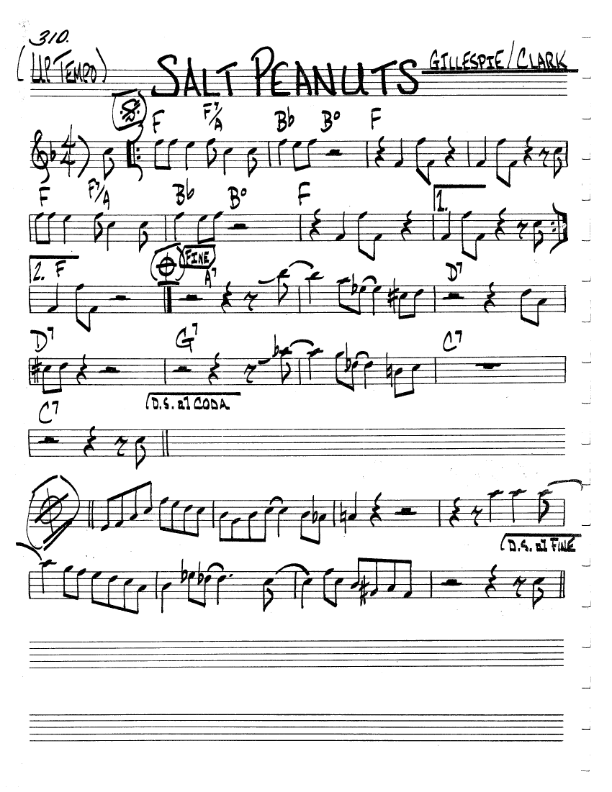 310.
(UP TEMPO) SALT PEANUTS GILLESPIE/CLARK
F F7/A Bb Bo F
4/4
F F7/A Bb Bo F 1.
2. F FINE A7 D7
D7 G7 C7
D.S. al CODA
C7
D.S. al FINE